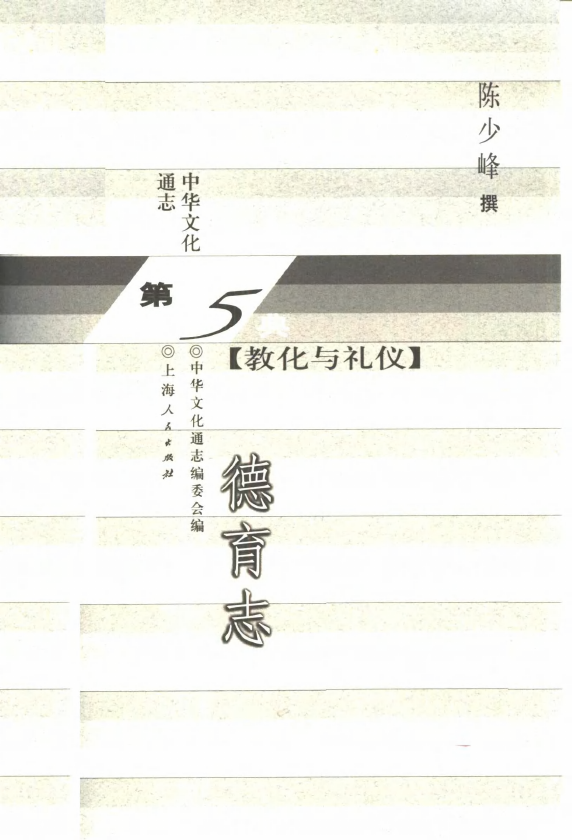 陈少峰 撰
中华文化
通志
第5典
【教化与礼仪】
◎中华文化通志编委会编
◎上海人民出版社
德育志